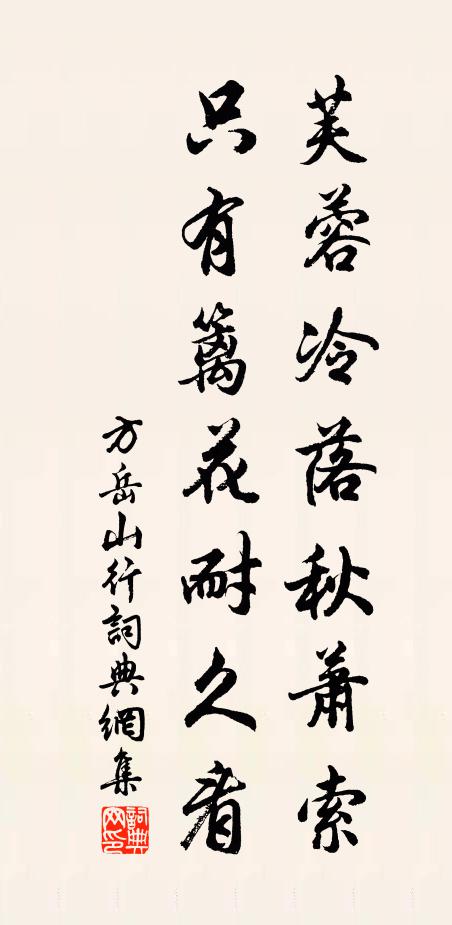 芙蓉冷落秋萧索
只有籬花耐久看
方岳山行詞典網集
詞典網印